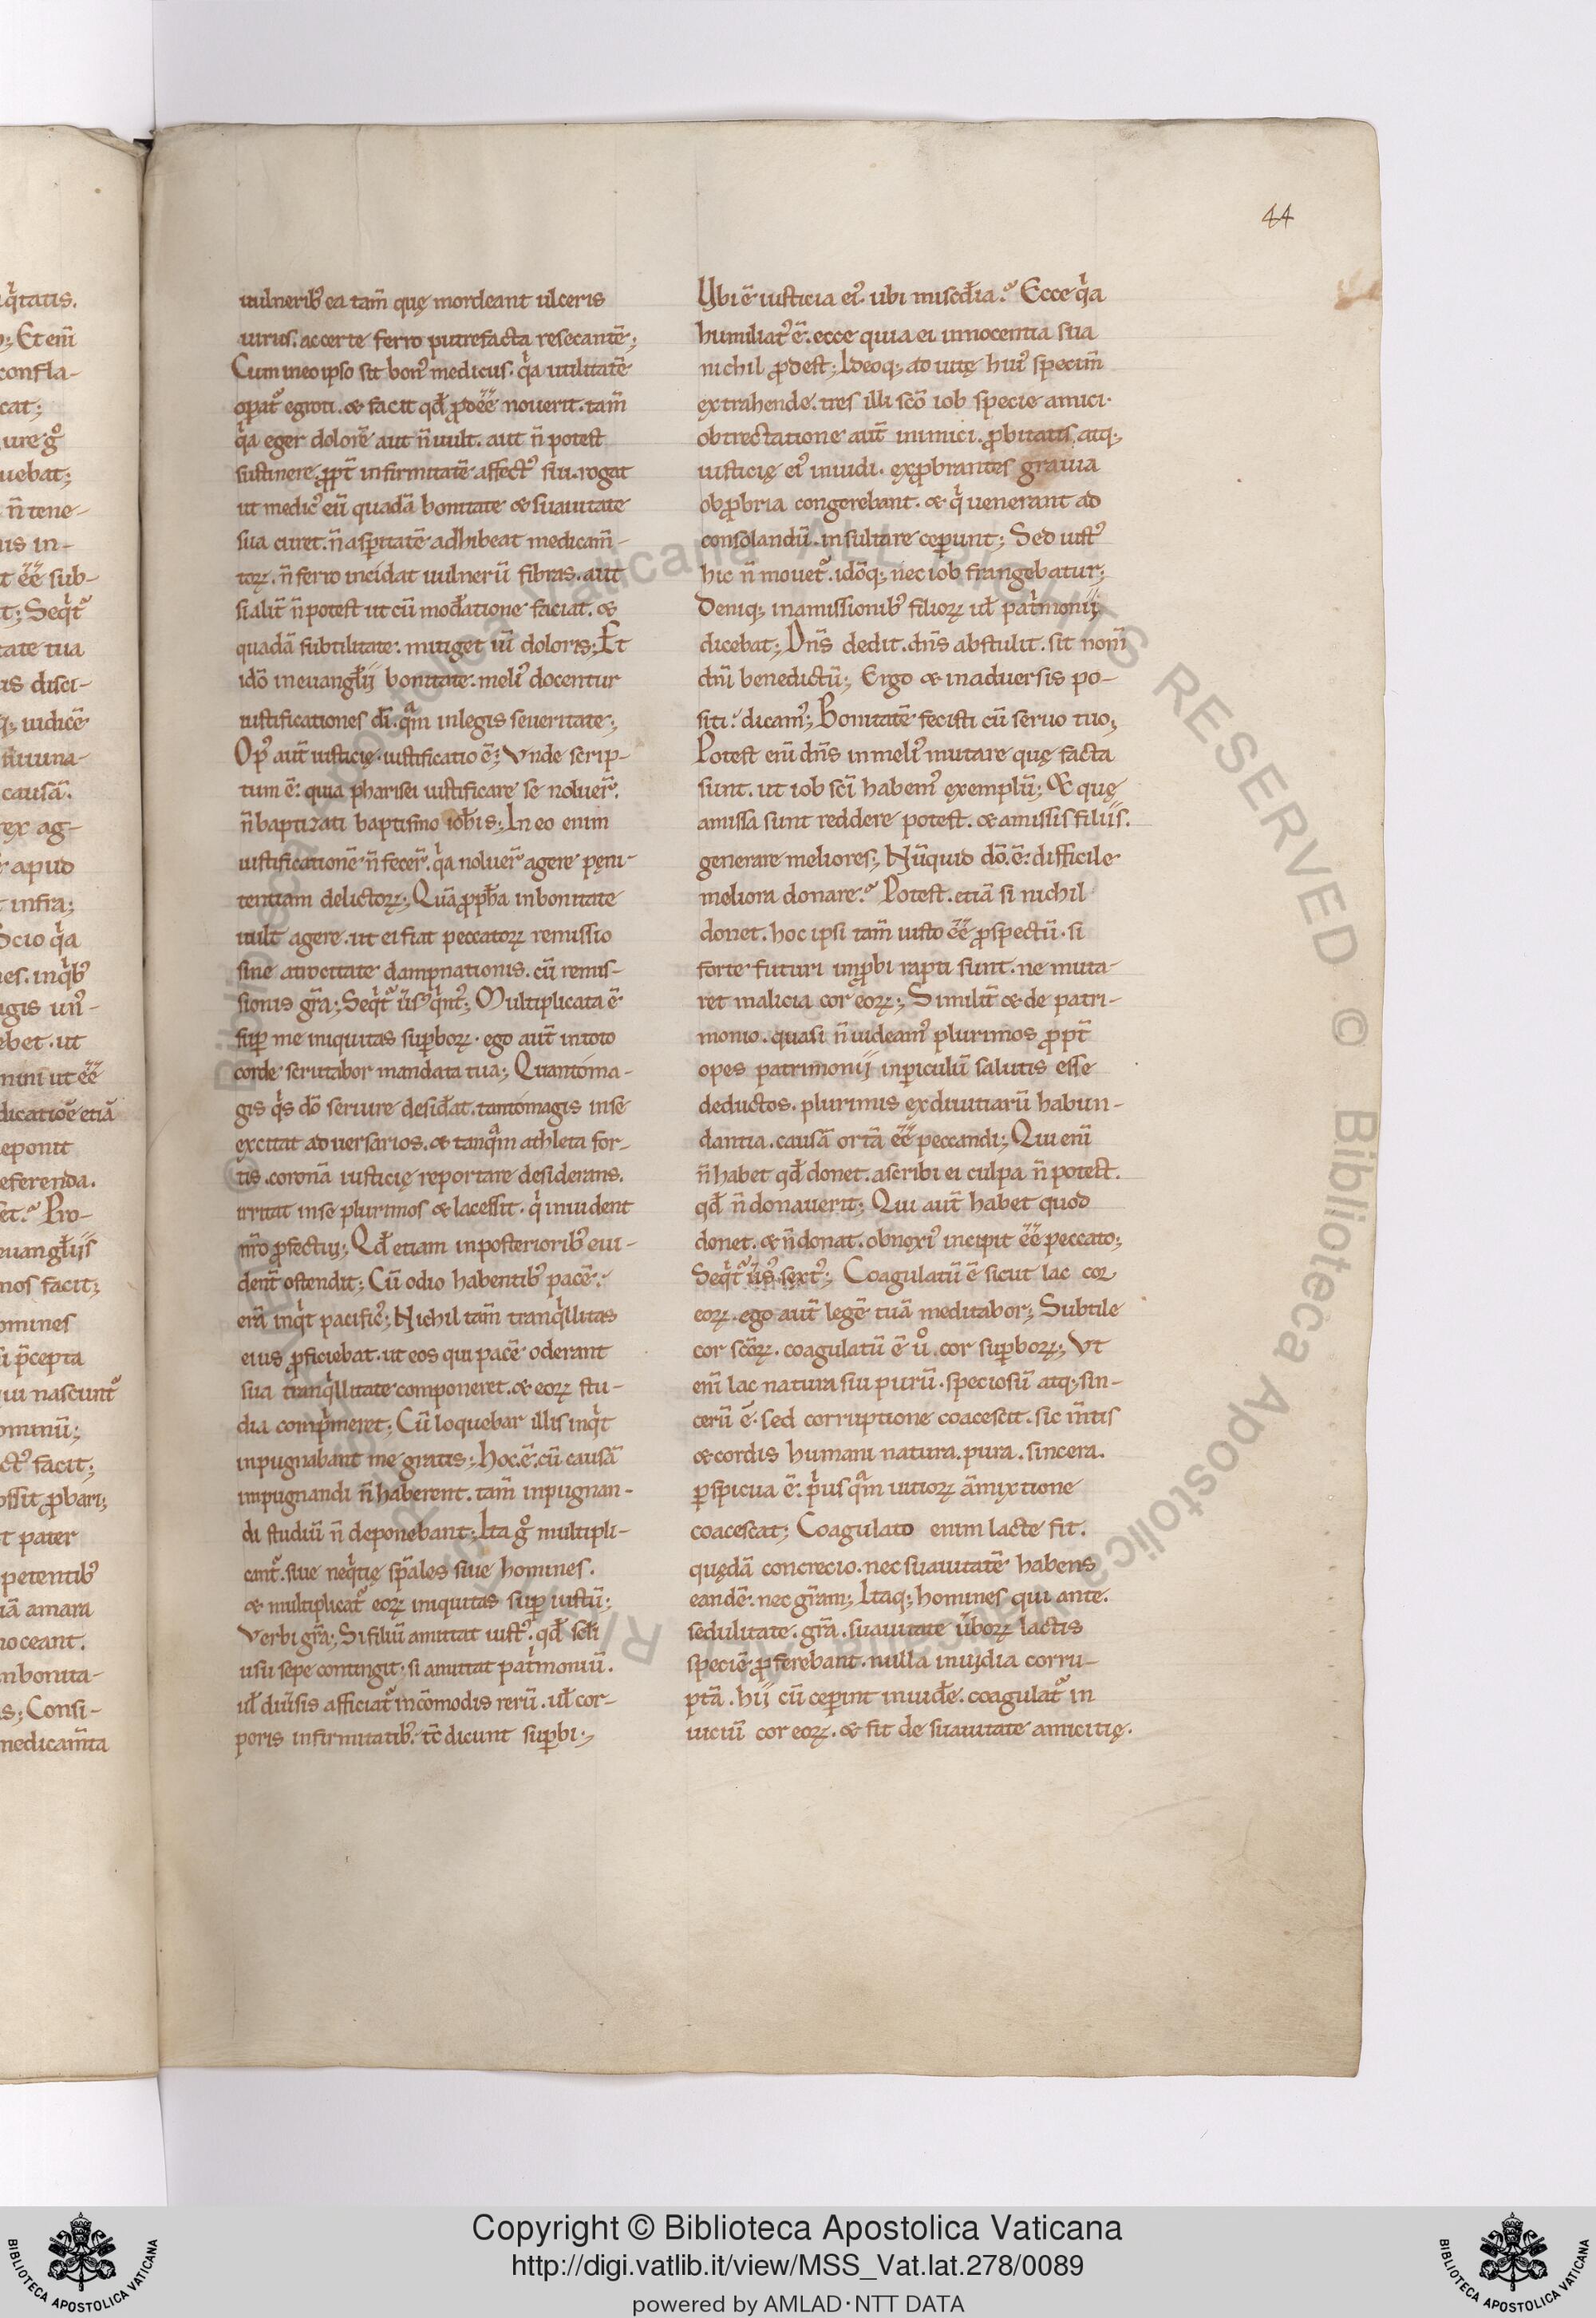 44
q̓tatis.
confla-
cat;
uebat;
n̄ tene-
ius in-
t ēē sub-
tate tua
as disci-
causā.
rex ag-
apud
infra;
Scio q̓a
ebet. ut
dicatiōe etiā
eponit
eferenda.
mos facit;
omines
si p̄cepta
ominū;
ossit ꝓbari;
t pater
petentibꝰ
iā amara
noceant.
nbonita-
is; Consi-
medicam̄ta
uulneribꝰ ea tam̄ quę mordeant ulceris
uirus. ac certe ferro putrefacta resecantē;
Cum in eo ipso sit bonꝰ medicus. q̓a utilitatē
oꝑat᷑ egroti. & facit qđ ꝓdēē nouerit. tam̄
q̓a eger dolorē aut n̄ uult. aut n̄ potest
sustinere. ꝓpt̄ infirmitatē affectꝰ sui. rogat
ut medicꝰ eū quadā bonitate & suauitate
sua curet. n̄ asꝑitatē adhibeat medicam̄-
toꝝ. n̄ ferro incidat uulnerū fibras. aut
si alit̄ n̄ potest ut cū mođatione faciat. &
quadā subtilitate. mitiget uī doloris; Et
idō in euangłij bonitate. meliꝰ docentur
iustificationes dī. qᵃm in legis seueritate;
Opꝰ aut̄ iusticię. iustificatio ē; Vnde scrip-
tum ē. quia pharisei iustificare se noluer̄.
n̄ baptizati baptismo ioħis; In eo enim
iustificationē n̄ fecer̄. q̓a noluer̄ agere pęni-
tentiam delictoꝝ; Quā ꝓpħa in bonitate
uult agere. ut ei fiat peccatoꝝ remissio
sine atrocitate dampnationis. cū remis-
sionis gr̄a; Seq̓t᷑ ūsꝰ q̓ntꝰ; Multiplicata ē
suꝑ me iniquitas suꝑboꝝ. ego aut̄ in toto
corde scrutabor mandata tua; Quanto ma-
gis q̓s dō seruire desiđat. tanto magis in se
excitat aduersarios. & tanqᵃm athleta for-
tis. coronā iusticię reportare desiderans.
irritat in se plurimos & lacessit. q̓ inuident
nr̄o ꝓfectui; Qđ etiam in posterioribꝰ eui-
dent̄ ostendit; Cū odio habentibꝰ pacē.
erā inq̓t pacificꝰ; Nichil tam̄ tranq̓llitas
eius ꝓficiebat. ut eos qui pacē oderant
sua tranq̓llitate componeret. & eoꝝ stu-
dia comp̓meret; Cū loquebar illis inq̓t
inpugnabant me gratis; Hoc. ē. cū causā
impugnandi n̄ haberent. tam̄ inpugnan-
di studiū n̄ deponebant; Ita gͦ multipli-
cant᷑. siue neq̓tię sp̄ales siue homines.
& multiplicat᷑ eoꝝ iniquitas suꝑ iustū;
Verbi gr̄a; Si filiū amittat iustꝰ. qđ scłi
usu sepe contingit. si amittat pat̓moniū.
uł diūsis afficiat᷑ incōmodis rerū. uł cor-
poris infirmitatibꝰ. tc̄ dicunt suꝑbi;
Vbi ē iusticia eiꝰ. ubi miseđia? Ecce q̓a
humiliatꝰ ē. ecce quia ei innocentia sua
nichil ꝓdest; Ideoq; ad uitę huiꝰ specim̄
extrahende. tres illi scō iob specie amici.
obtrectatione aut̄ inimici. ꝓbitatis atq;
iusticię eiꝰ inuidi. exꝓbrantes grauia
obꝓbria congerebant. & q̓ uenerant ad
consolandū. insultare ceꝑunt; Sed iustꝰ
hic n̄ mouet᷑. idōq; nec iob frangebatur;
Deniq; in amissionibꝰ filioꝝ uł pat̓monij
dicebat; Dn̄s dedit. dn̄s abstulit. sit nom̄
dn̄i benedictū; Ergo & in aduersis po-
siti. dicamꝰ; Bonitatē fecisti cū seruo tuo;
Potest eni̅ dn̄s in meliꝰ mutare quę facta
sunt. ut iob sc̄i habemꝰ exemplū; & quę
amissa sunt reddere potest. & amissis filiis.
generare meliores; Nūquid dō. ē. difficile
meliora donare? Potest. etiā si nichil
donet. hoc ipsi tam̄ iusto ēē ꝓspectū. si
forte futuri imꝓbi rapti sunt. ne muta-
ret malicia cor eoꝝ; Similit̄ & de patri-
monio. quasi n̄ uideamꝰ plurimos ꝓpt̄
opes patrimonij in ꝑiculū salutis esse
deductos. plurimis ex diuitiarū habun-
dantia. causā ortā ēē peccandi; Qui eni̅
n̄ habet qđ donet. ascribi ei culpa n̄ potest.
qđ n̄ donauerit; Qui aut̄ habet quod
donet. & n̄ donat. obnoxiꝰ incipit ēē peccato;
Seq̓t᷑ ūsꝰ sextꝰ; Coagulatū ē sicut lac cor
eoꝝ. ego aut̄ legē tuā meditabor; Subtile
cor scōꝝ. coagulatū ē ůͦ. cor suꝑboꝝ; Vt
eni̅ lac natura sui purū. speciosū atq; sin-
cerū ē. sed corruptione coacescit. sic m̄tis
& cordis humani natura. pura. sincera.
ꝑspicua ē. p̓usqᵃm uitioꝝ ām̄ixtione
coacescat; Coagulato enim lacte fit.
quędā concrecio. nec suauitatē habens
eandē. nec gr̄am; Itaq; homines qui ante.
sedulitate. gr̄a. suauitate ūboꝝ lactis
speciē ꝓferebant. nulla inuidia corru-
ptā. hij cū ceꝑint inuiđe. coagulat᷑ in
uiciū cor eoꝝ. & fit de suauitate amicitię.
© Biblioteca Apostolica Vaticana ALL RIGHTS RESERVED
Copyright © Biblioteca Apostolica Vaticana
http://digi.vatlib.it/view/MSS_Vat.lat.278/0089
powered by AMLAD·NTT DATA
BIBLIOTECA APOSTOLICA VATICANA
BIBLIOTECA APOSTOLICA VATICANA